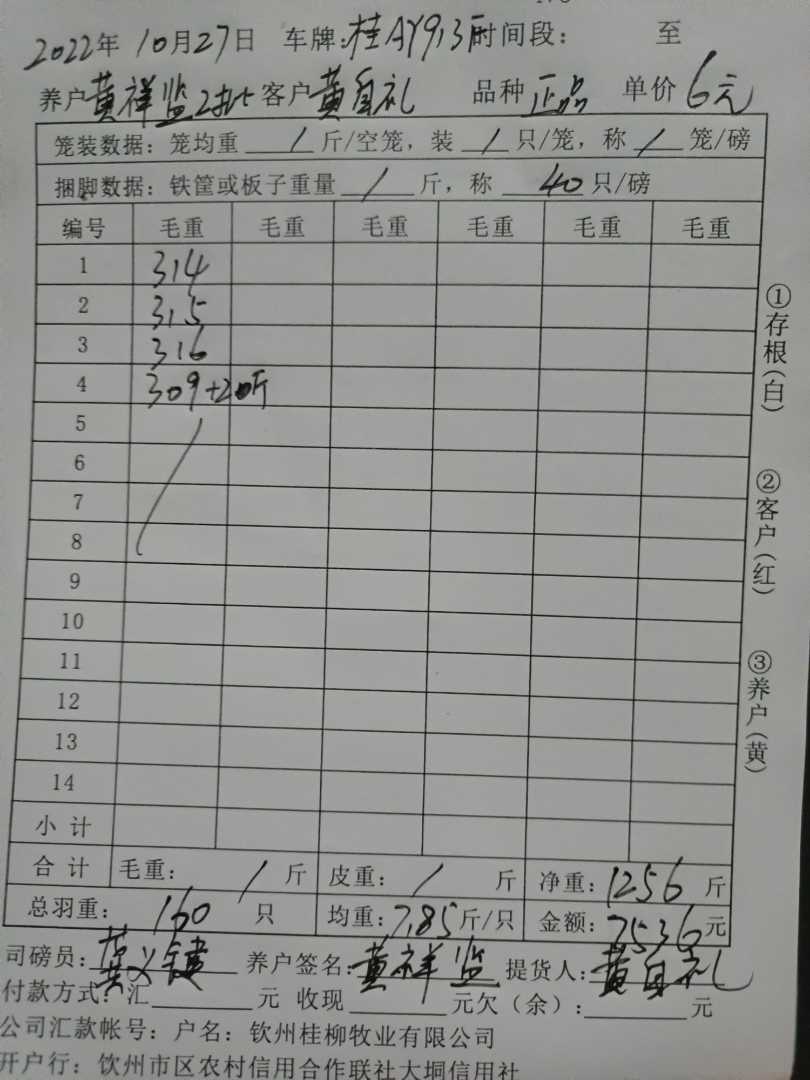 2022年 10月27日 车牌:桂AY913 时间段: 至
养户黄祥监2批 客户黄自礼 品种 正品 单价 6元
笼装数据: 笼均重 / 斤/空笼, 装 / 只/笼, 称 / 笼/磅
捆脚数据: 铁筐或板子重量 / 斤, 称 40 只/磅
编号 毛重 毛重 毛重 毛重 毛重 毛重
1 314
2 315
3 316
4 309+2斤
5
6
7
8
9
10
11
12
13
14
小计
合计 毛重: / 斤 皮重: / 斤 净重: 1256 斤
总羽重: 160 只 均重: 7.85 斤/只 金额: 7536 元
司磅员: 黄义健 养户签名: 黄祥监 提货人: 黄自礼
付款方式: 汇 元 收现 元欠(余): 元
公司汇款帐号: 户名: 钦州桂柳牧业有限公司
开户行: 钦州市区农村信用合作联社大垌信用社
①存根(白)
②客户(红)
③养户(黄)